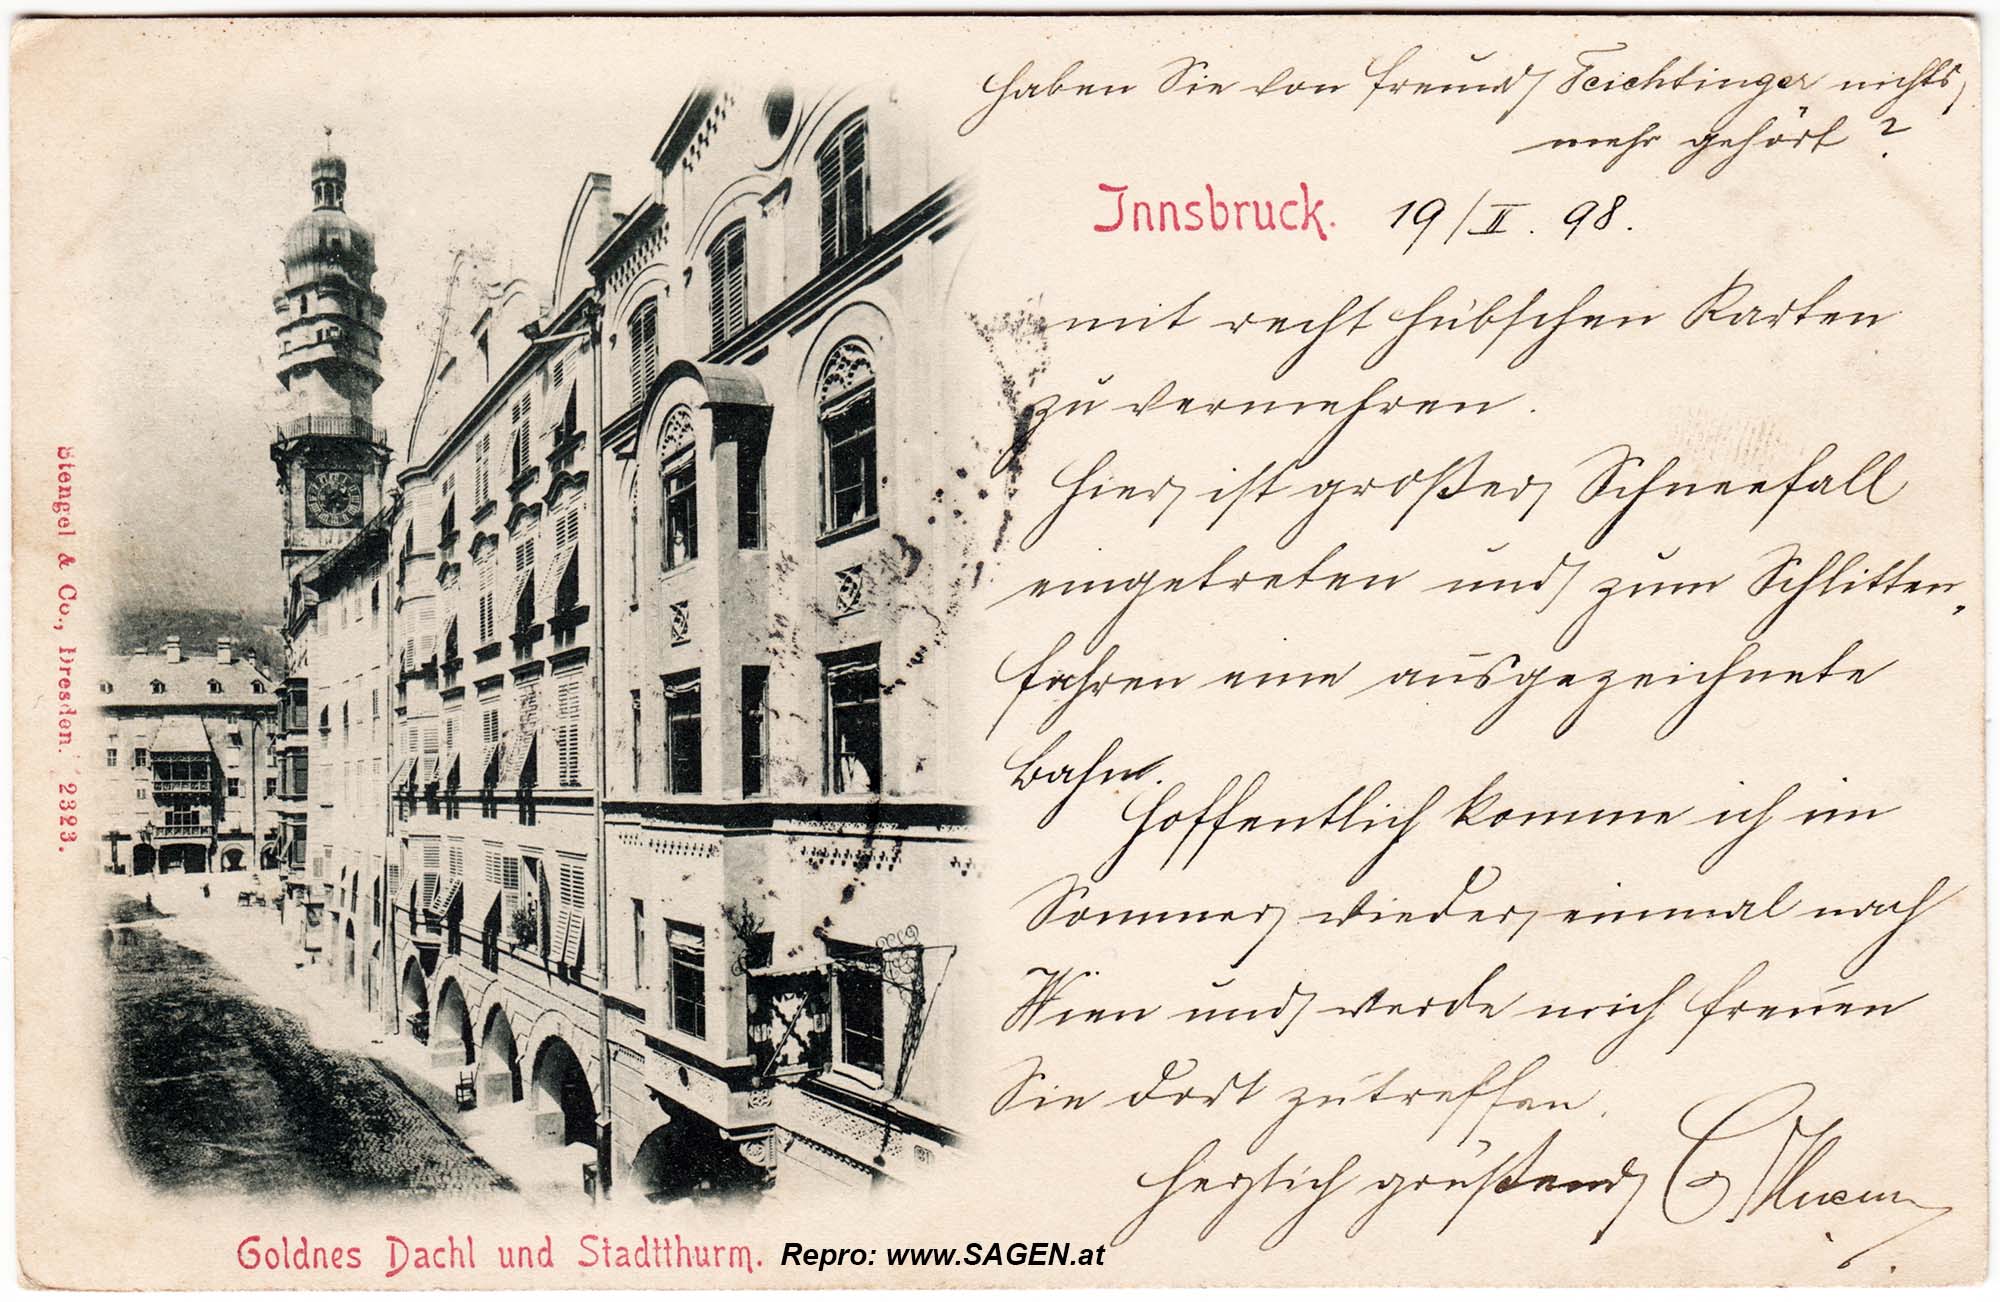 haben Sie von Freund Feichtinger nichts
mehr gehört?
Innsbruck. 19/II. 98.
mit recht hübschen Karten
zu vermehren.
Hier ist großer Schneefall
eingetreten und zum Schlitten-
fahren eine ausgezeichnete
Bahn.
Hoffentlich komme ich im
Sommer wieder einmal nach
Wien und werde mich freuen
Sie dort zutreffen.
Herzlich grüßend
Stengel & Co., Dresden. 2323.
Goldnes Dachl und Stadtthurm.
Repro: www.SAGEN.at